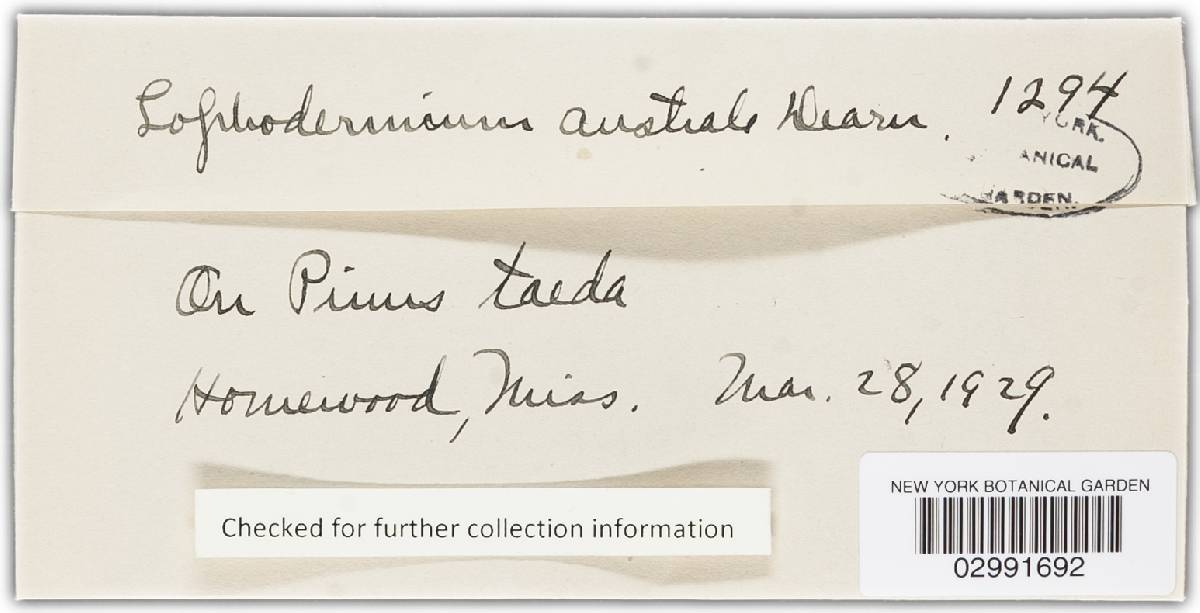 Lophodermium australe Dearn. 1294
YORK.
ANICAL
GARDEN.
On Pinus taeda
Homewood, Miss. Mar. 28, 1929.
Checked for further collection information
NEW YORK BOTANICAL GARDEN
02991692